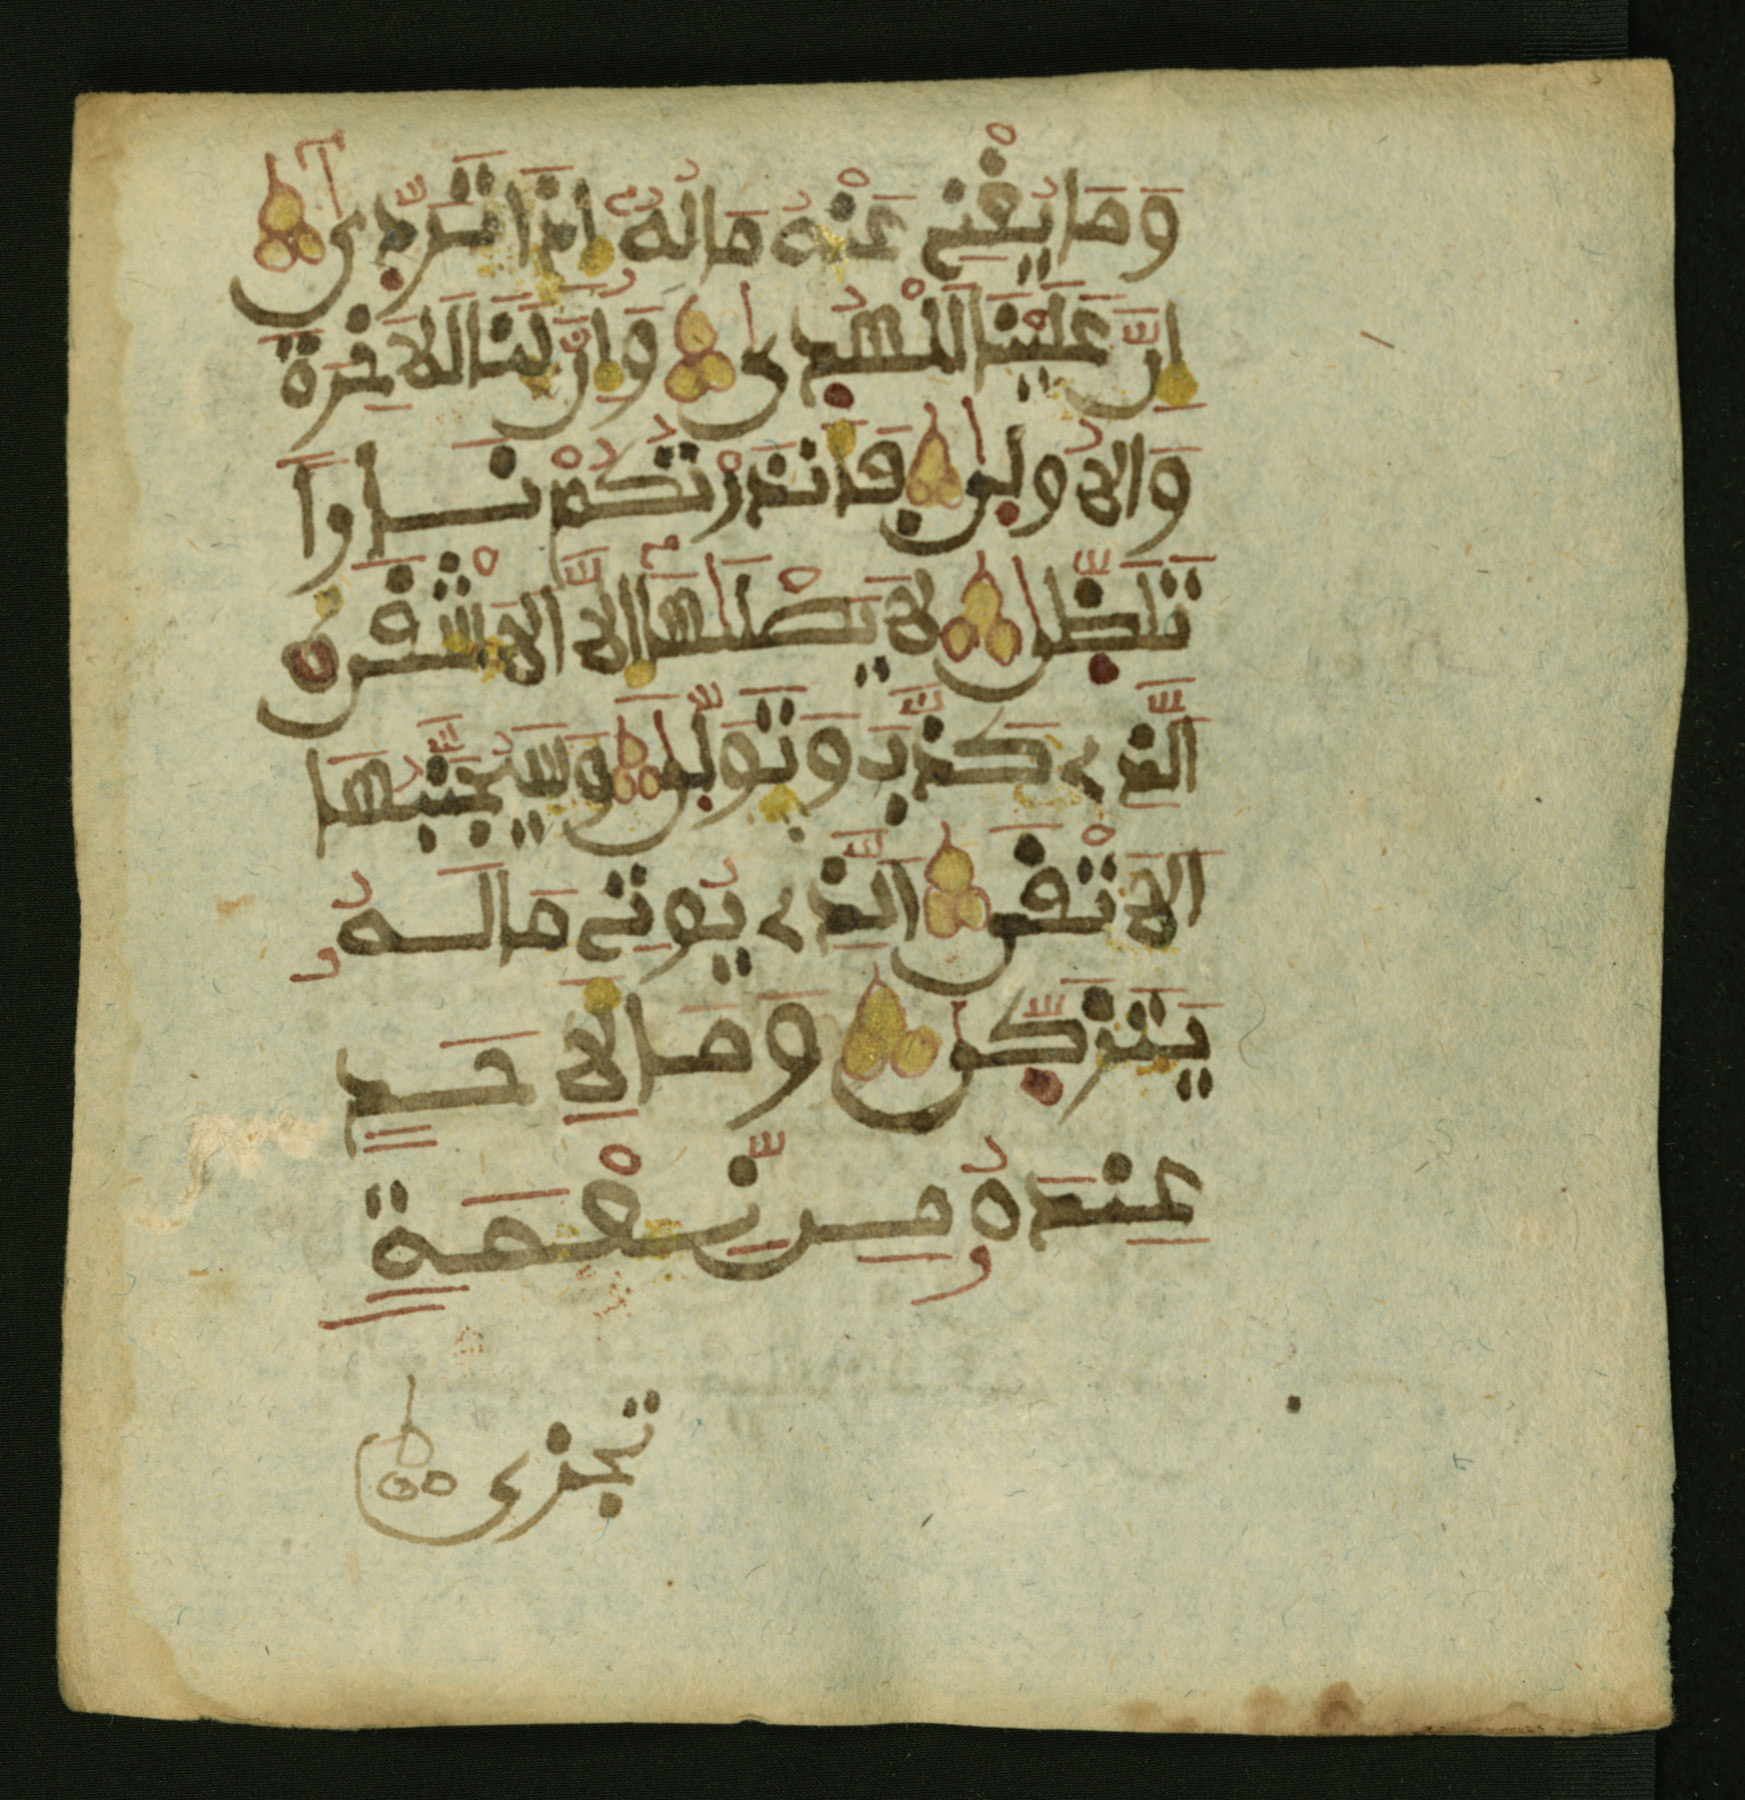 وَمَا يُغْنِي عَنْهُ مَالُهُۥٓ إِذَا تَرَدَّىٰٓ
إِنَّ عَلَيْنَا لَلْهُدَىٰ وَإِنَّ لَنَا لَلَاخِرَةَ
وَالُاولَىٰ فَأَنذَرْتُكُمْ نَارًا
تَلَظَّىٰ لَا يَصْلَىٰهَآ إِلَّا الَاشْقَى
الَّذِے كَذَّبَ وَتَوَلَّىٰ وَسَيُجَنَّبُهَا
الَاتْقَى الَّذِے يُوتِے مَالَهُۥ
يَتَزَكَّىٰ وَمَا لِأَحَدٍ
عِندَهُۥ مِن نِّعْمَةٍ
تجزى